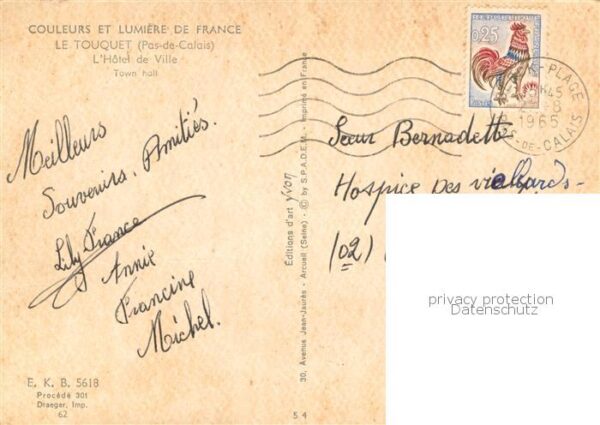 COULEURS ET LUMIÈRE DE FRANCE
LE TOUQUET (Pas-de-Calais)
L'Hôtel de Ville
Town hall
Meilleurs
Souvenirs. Amitiés.
Lily France
Annie
Francine
Michel.
E. K. B. 5618
Procédé 301
Draeger, Imp.
62
Editions d'art yvon - © by S.P.A.D.E.M. - Imprimé en France
30, Avenue Jean-Jaurès - Arcueil (Seine)
54
0,25
PLAGE
1965
PAS-DE-CALAIS
Sœur Bernadette
Hospice des vieillards -
(02)
privacy protection
Datenschutz